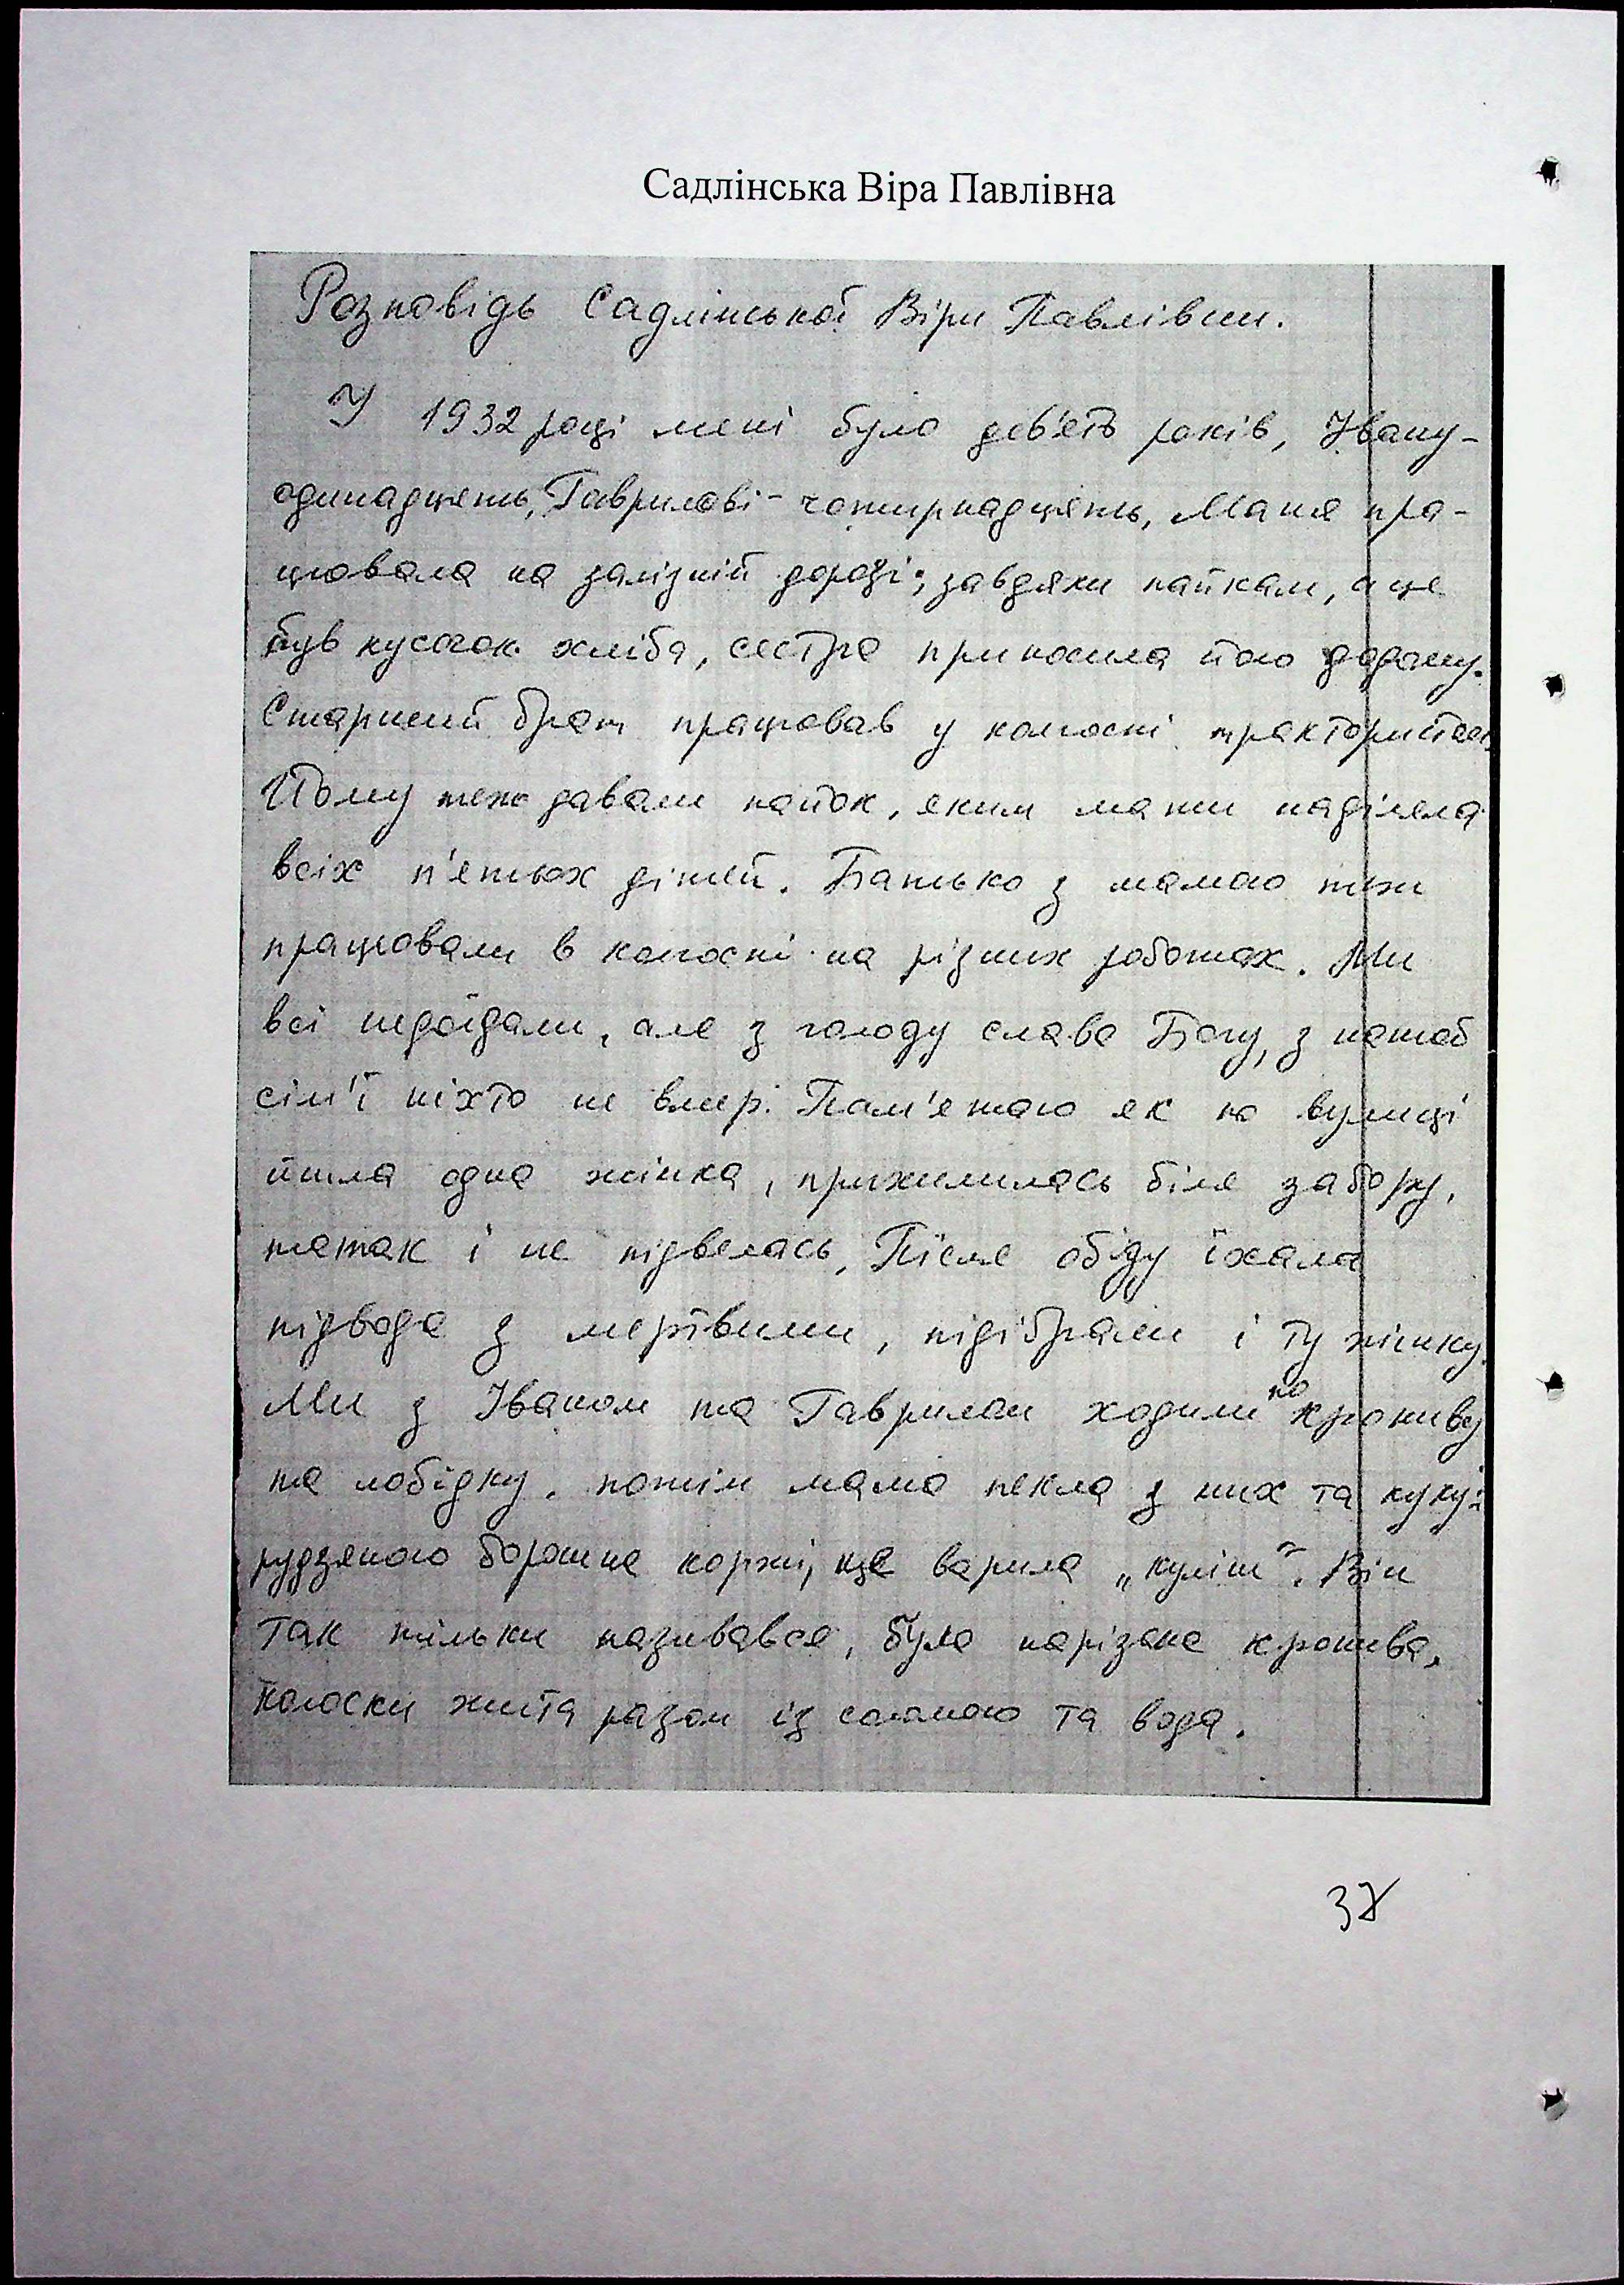 Садлінська Віра Павлівна
Розповідь Садлінської Віри Павлівни.
У 1932 році мені було дев'ять років, Івану -
одинадцять, Гаврилові - чотирнадцять, Маня пра-
цювала на залізній дорозі; завдяки пайкам, а це
був кусочок хліба, сестра приносила його додому.
Старший брат працював у колгоспі трактористом.
Йому теж давали пайок, яким мати наділяла
всіх п'ятьох дітей. Батько з мамою теж
працювали в колгоспі на різних роботах. Ми
всі недоїдали, але з голоду слава Богу, з нашої
сім'ї ніхто не вмер. Пам'ятаю як по вулиці
йшла одна жінка, прихилилась біля забору,
та так і не підвелась. Після обіду їхала
підвода з мертвими, підібрали і ту жінку.
Ми з Іваном та Гаврилом ходили по кропиву
та лобідку, потім мама пекла з них та куку-
рудзяного борошна коржі, ще варила „куліш". Він
так тільки називався, була нарізана кропива,
колоски жита разом із соломою та вода.
37